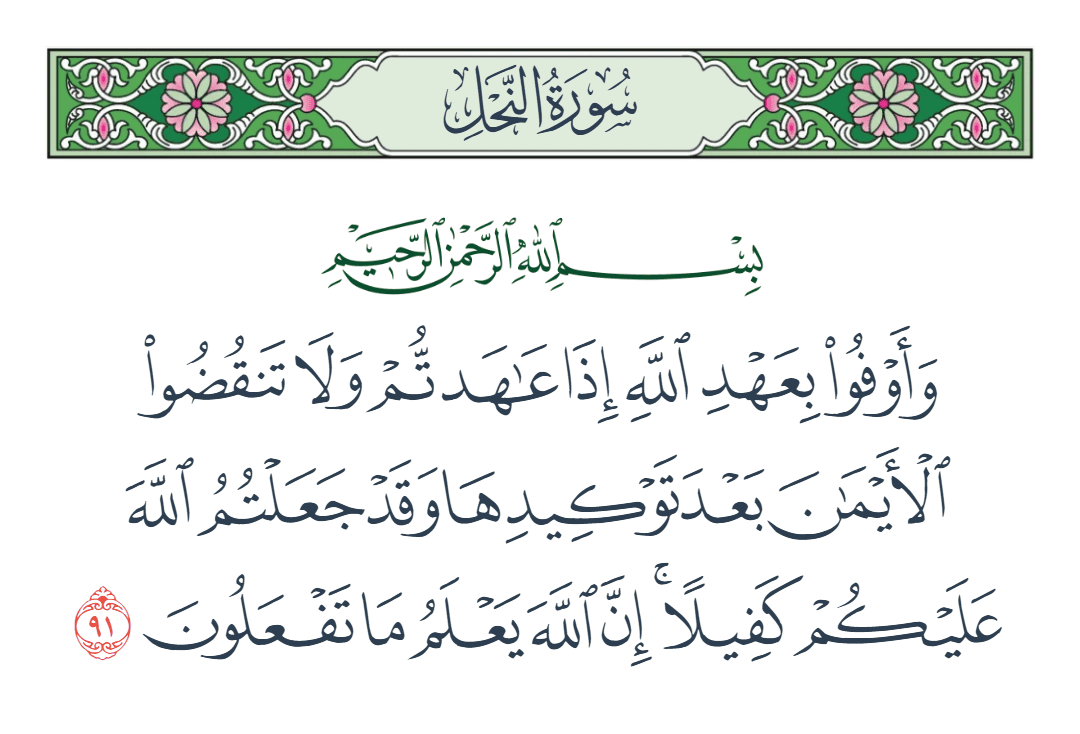 سُورَةُ النَّحْلِ
بِسْمِ ٱللَّهِ ٱلرَّحْمَٰنِ ٱلرَّحِيمِ
وَأَوْفُوا۟ بِعَهْدِ ٱللَّهِ إِذَا عَـٰهَدتُّمْ وَلَا تَنقُضُوا۟
ٱلْأَيْمَـٰنَ بَعْدَ تَوْكِيدِهَا وَقَدْ جَعَلْتُمُ ٱللَّهَ
عَلَيْكُمْ كَفِيلًا ۚ إِنَّ ٱللَّهَ يَعْلَمُ مَا تَفْعَلُونَ ٩١